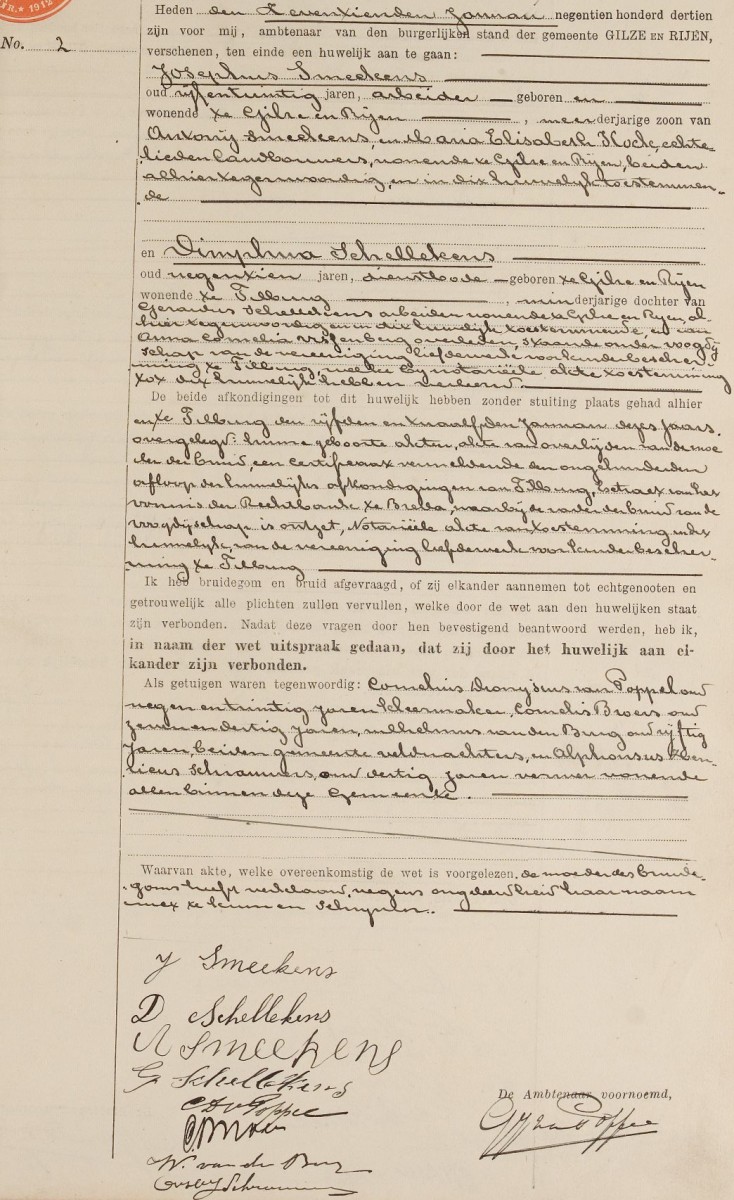 R. * 1912
No. 2
Heden den Zevenzienden Januari negentien honderd dertien
zijn voor mij, ambtenaar van den burgerlijken stand der gemeente GILZE EN RIJEN,
verschenen, ten einde een huwelijk aan te gaan:
Josephus Smeekens
oud vijfentwintig jaren, arbeider geboren en
wonende te Gilze en Rijen, meerderjarige zoon van
Antonij Smeekens, en Maria Elisabeth Kock, echte-
lieden landbouwers, wonende te Gilze en Rijen, beiden
alhier tegenwoordig, en in dit huwelijk toestemmen-
de
en Dimphna Schellekens
oud negentien jaren, dienstbode geboren te Gilze en Rijen
wonende te Tilburg, minderjarige dochter van
Gerardus Schellekens arbeider wonende te Gilze en Rijen, al-
hier tegenwoordig en in dit huwelijk toestemmende, en van
Anna Cornelia overleden, staande onder voogdij
schap van de vereeniging liefdewerk voor kinderbescher-
ming te Tilburg, welke bij notariëele akte toestemming
tot dit huwelijk hebben verleend.
De beide afkondigingen tot dit huwelijk hebben zonder stuiting plaats gehad alhier
en te Tilburg den vijfden en twaalfden Januari dezes jaars.
overgelegd: hunne geboorte akten, akte van overlijden van de moe
der der bruid, een certificaat vermeldende den ongehinderden
afloop der huwelijks afkondigingen van Tilburg, Extract van het
vonnis der Rechtbank te Breda, waarbij de vader der bruid van de
voogdijschap is ontzet, Notariëele akte van toestemming in dit
huwelijk, van de vereeniging liefdewerk voor kinderbescher-
ming te Tilburg
Ik heb bruidegom en bruid afgevraagd, of zij elkander aannemen tot echtgenooten en
getrouwelijk alle plichten zullen vervullen, welke door de wet aan den huwelijken staat
zijn verbonden. Nadat deze vragen door hen bevestigend beantwoord werden, heb ik,
in naam der wet uitspraak gedaan, dat zij door het huwelijk aan el-
kander zijn verbonden.
Als getuigen waren tegenwoordig: Cornelius Dionijsius van Poppel oud
negenentwintig jaren kleermaker, Cornelis Broers oud
zevenendertig jaren, Wilhelmus van den Burg oud vijftig
jaren, beiden gemeente veldwachters, en Alphonsus Hen-
ricus Schrauwers, oud dertig jaren verwer wonende
allen binnen deze Gemeente.
Waarvan akte, welke overeenkomstig de wet is voorgelezen. de moeder des bruide-
goms heeft verklaard, wegens ongeleerdheid haar naam
niet te kunnen schrijven.
J Smeekens
D Schellekens
A Smeekens
G Schellekens
CD v Poppel
W. van den Burg
Schrauwers
De Ambtenaar voornoemd,
van Poppel